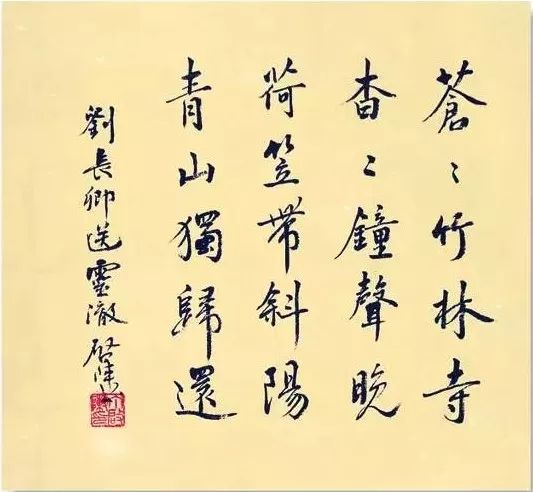 蒼〻竹林寺
杳〻鐘聲晚
荷笠帶斜陽
青山獨歸還
劉長卿送靈澈